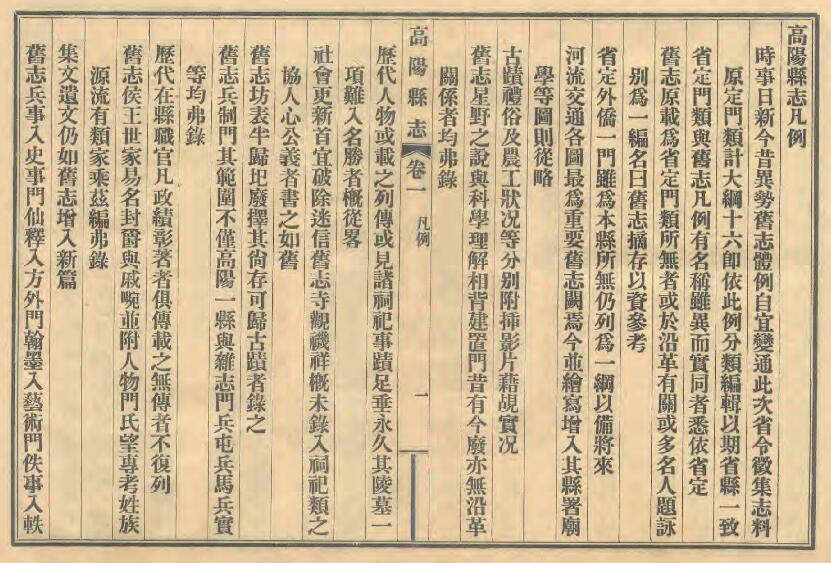 高陽縣志凡例
時事日新今昔異勢舊志體例自宜變通此次省令徵集志料
原定門類計大綱十六卽依此例分類編輯以期省縣一致
省定門類與舊志凡例有名稱雖異而實同者悉依省定
舊志原載爲省定門類所無者或於沿革有關或多名人題詠
别爲一編名曰舊志摘存以資參考
省定外僑一門雖爲本縣所無仍列爲一綱以備將來
河流交通各圖最爲重要舊志闕焉今並繪寫增入其縣署廟
學等圖則從略
古蹟禮俗及農工狀况等分别附挿影片藉覘實况
舊志星野之說與科學理解相背建置門昔有今廢亦無沿革
關係者均弗錄
高陽縣志
卷一
凡例
一
歷代人物或載之列傳或見諸祠祀事蹟足垂永久其陵墓一
項難入名勝者槪從畧
社會更新首宜破除迷信舊志寺觀禨祥槪未錄入祠祀類之
協人心公義者書之如舊
舊志坊表半歸圯廢擇其尙存可歸古蹟者錄之
舊志兵制門其範圍不僅高陽一縣與雜志門兵屯兵馬兵實
等均弗錄
歷代在縣職官凡政績彰著者俱傳載之無傳者不復列
舊志侯王世家易名封爵與戚畹並附人物門氏望專考姓族
源流有類家乘茲編弗錄
集文遺文仍如舊志增入新篇
舊志兵事入史事門仙釋入方外門翰墨入藝術門佚事入軼